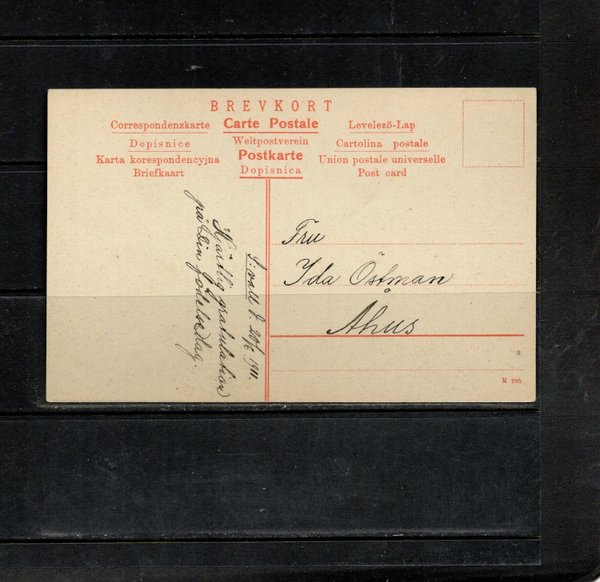 BREVKORT
Correspondenzkarte Carte Postale Levelező-Lap
Dopisnice Weltpostverein Cartolina postale
Karta korespondencyjna Postkarte Union postale universelle
Briefkaart Dopisnica Post card
Fru
Yda Östman
Åhus
K 295
20/6 1911.
Hjärtlig gratulation
på Din födelsedag.